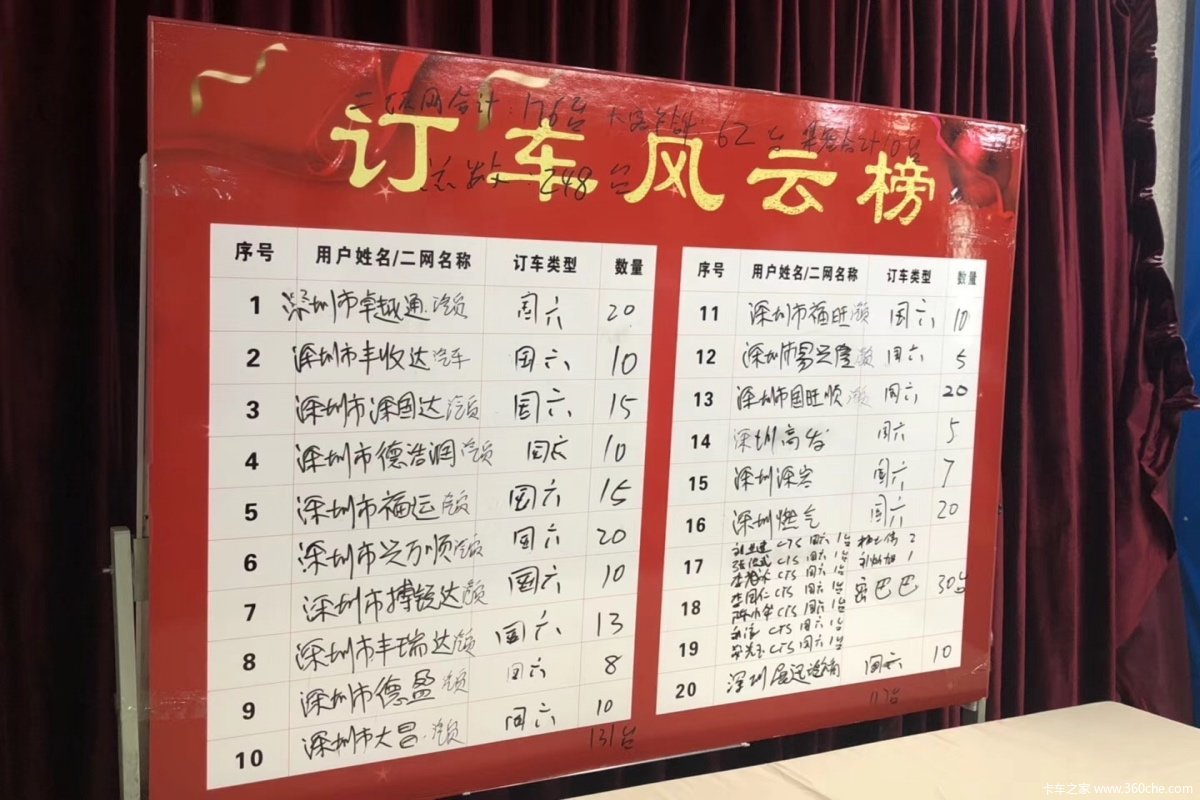 二级网合计:176台 大客户合计:62台 集客合计10台
订车风云榜
总数:248台
序号 用户姓名/二网名称 订车类型 数量
1 深圳市卓越通汽贸 国六 20
2 深圳市丰收达汽车 国六 10
3 深圳市深国达汽贸 国六 15
4 深圳市德浩润汽贸 国六 10
5 深圳市福运汽贸 国六 15
6 深圳市兴万顺汽贸 国六 20
7 深圳市搏锐达汽贸 国六 10
8 深圳市丰瑞达汽贸 国六 13
9 深圳市德盈汽贸 国六 8
10 深圳市大昌汽贸 国六 10
131台
序号 用户姓名/二网名称 订车类型 数量
11 深圳市福旺 国六 10
12 深圳市易兴隆 国六 5
13 深圳市国旺顺 国六 20
14 深圳高发 国六 5
15 深圳深安 国六 7
16 深圳燃气 国六 20
17 CTS 国六 1台 2
CTS 国六 1台 1
CTS 国六 1台
18 李国仁 CTS 国六 1台 密巴巴 30台
CTS 国六 1台
CTS 国六 1台
19 CTS 国六 1台
20 深圳 国六 10
117台
卡车之家 www.360che.com